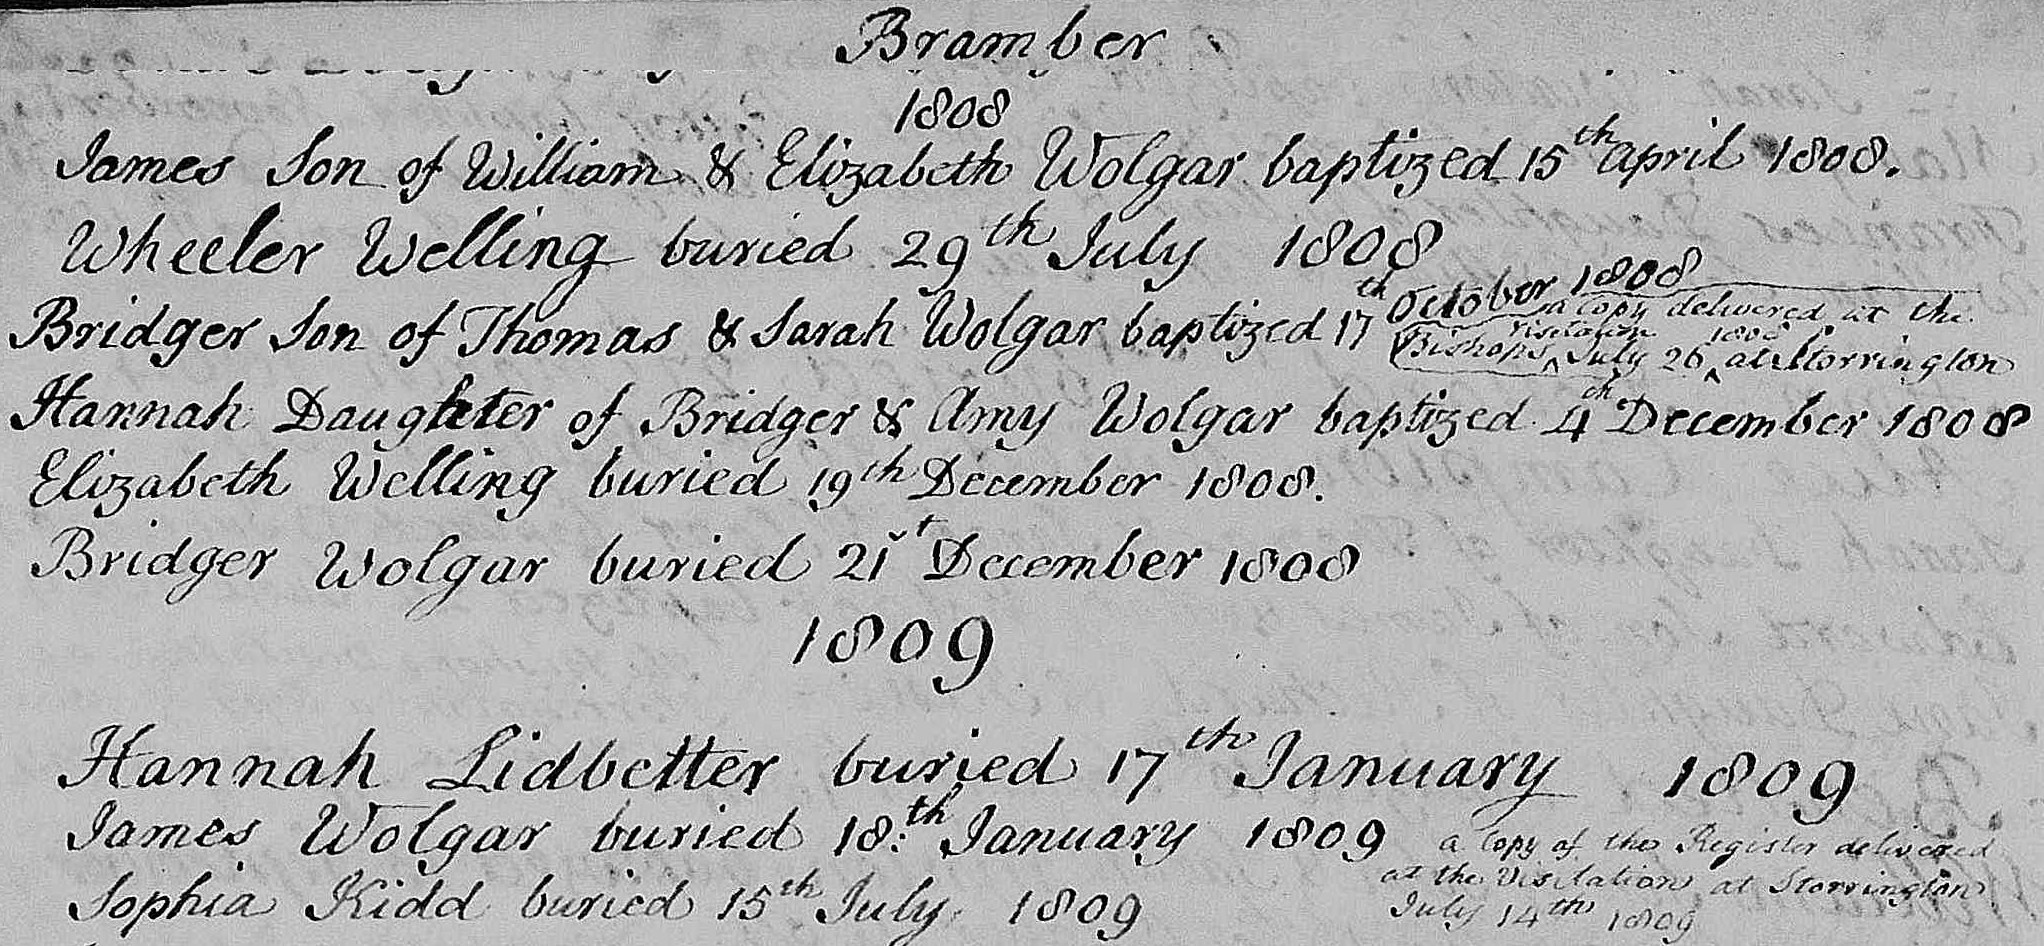 Bramber
1808
James Son of William & Elizabeth Wolgar baptized 15th april 1808.
Wheeler Welling buried 29th July 1808
Bridger Son of Thomas & Sarah Wolgar baptized 17th October 1808
a Copy delivered at the
Bishops Visitation July 26 1808 at Storrington
Hannah Daughter of Bridger & Amy Wolgar baptized 4th December 1808
Elizabeth Welling buried 19th December 1808.
Bridger Wolgar buried 21st December 1808
1809
Hannah Lidbetter buried 17th January 1809
James Wolgar buried 18:th January 1809
a Copy of the Register delivered
at the Visitation at Storrington
July 14th 1809
Sophia Kidd buried 15th July 1809